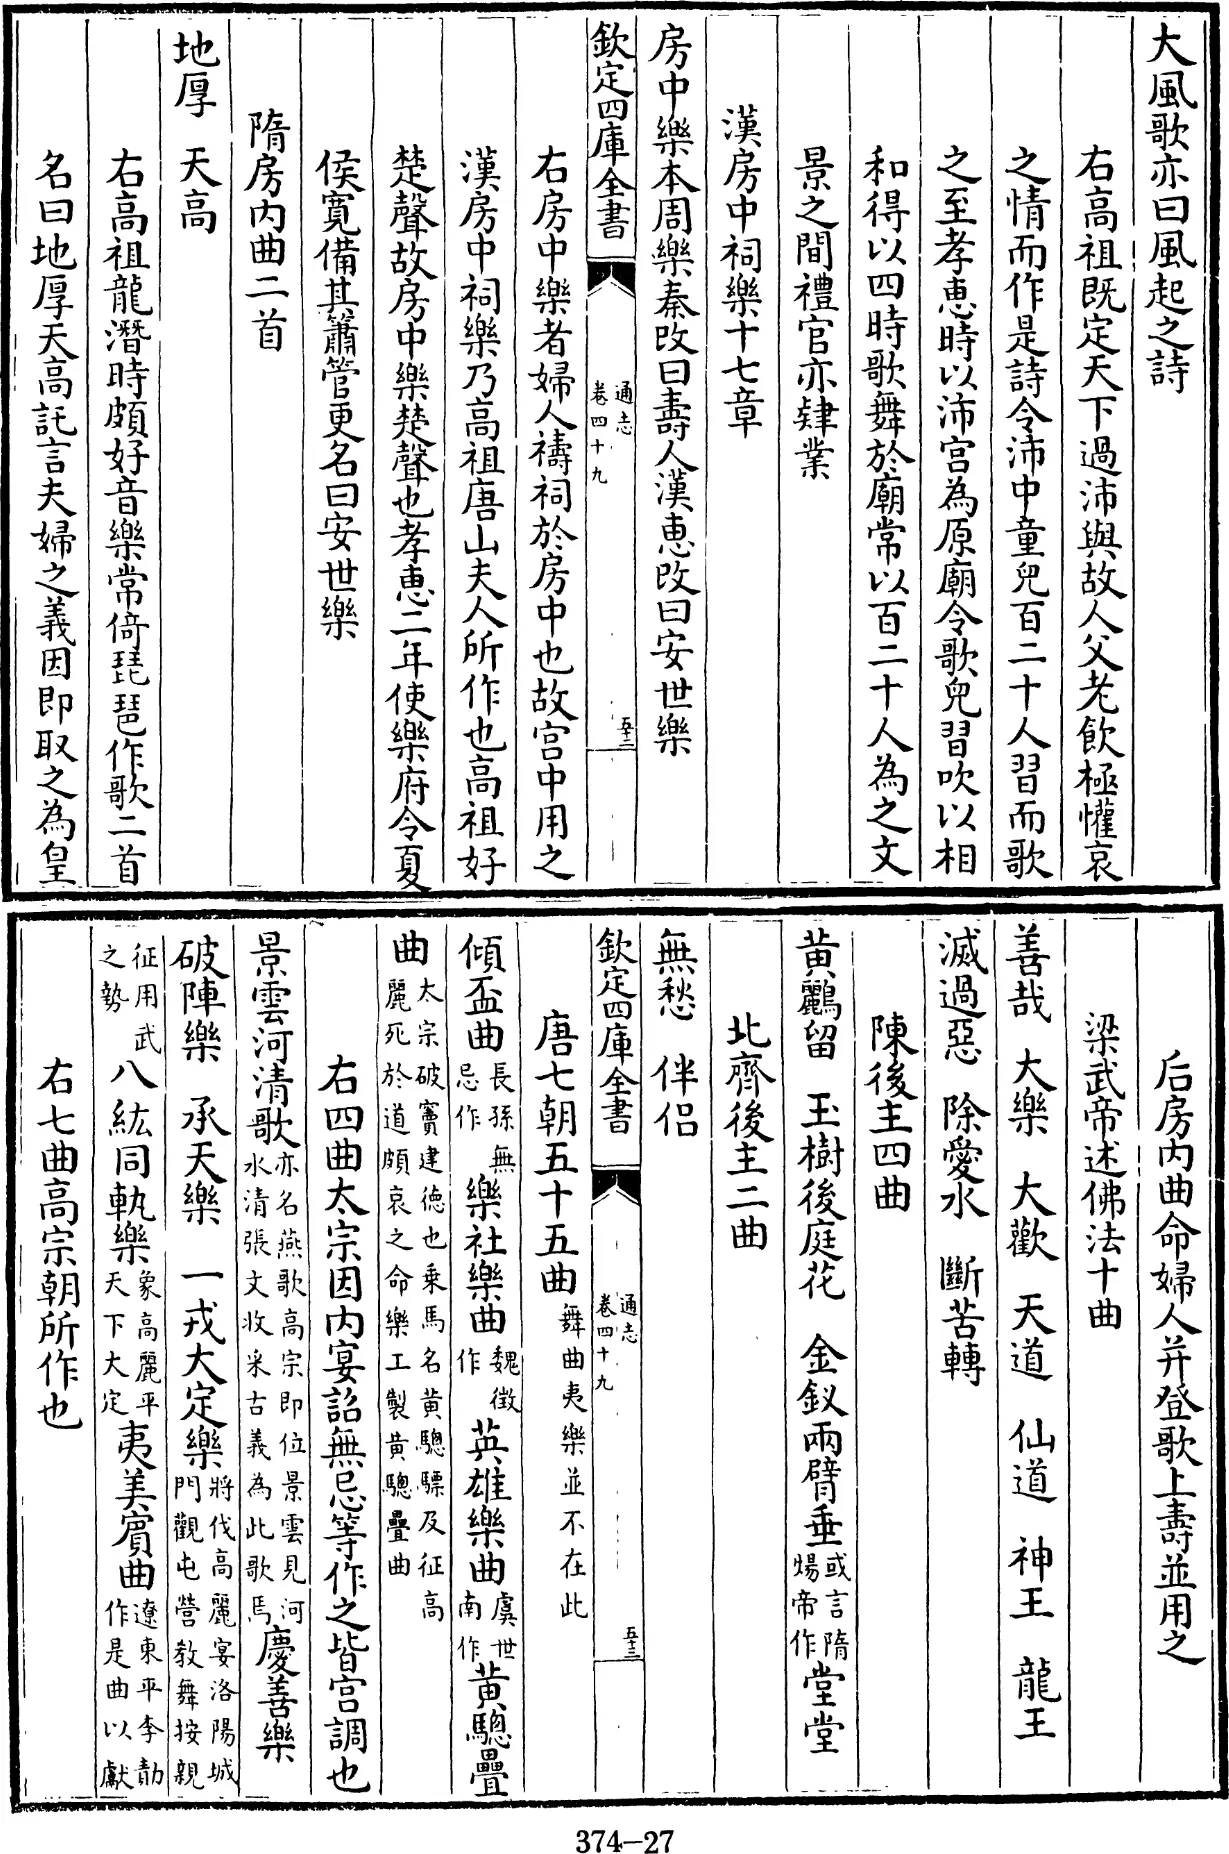 大風歌亦曰風起之詩
右高祖既定天下過沛與故人父老飲極懽哀
之情而作是詩令沛中童兒百二十人習而歌
之至孝惠時以沛宮為原廟令歌兒習吹以相
和得以四時歌舞於廟常以百二十人為之文
景之間禮官亦肄業
漢房中祠樂十七章
房中樂本周樂秦改曰壽人漢惠改曰安世樂
欽定四庫全書
通志
卷四十九
五十二
右房中樂者婦人禱祠於房中也故宮中用之
漢房中祠樂乃高祖唐山夫人所作也高祖好
楚聲故房中樂楚聲也孝惠二年使樂府令夏
侯寬備其簫管更名曰安世樂
隋房內曲二首
地厚　天高
右高祖龍潛時頗好音樂常倚琵琶作歌二首
名曰地厚天高託言夫婦之義因即取之為皇
后房內曲命婦人并登歌上壽並用之
梁武帝述佛法十曲
善哉　大樂　大歡　天道　仙道　神王　龍王
滅過惡　除愛水　斷苦轉
陳後主四曲
黃鸝留　玉樹後庭花　金釵兩臂垂或言隋煬帝作堂堂
北齊後主二曲
無愁　伴侶
欽定四庫全書
通志
卷四十九
五十三
唐七朝五十五曲舞曲夷樂並不在此
傾盃曲長孫無忌作　樂社樂曲魏徵作　英雄樂曲虞世南作黃驄疊
曲太宗破竇建德也乗馬名黃驄驃及征高麗死於道頗哀之命樂工製黃驄疊曲
右四曲太宗因內宴詔無忌等作之皆宮調也
景雲河清歌亦名燕歌高宗即位景雲見河水清張文收采古義為此歌焉慶善樂
破陣樂　承天樂　一戎大定樂將伐高麗宴洛陽城門觀屯營教舞按親
征用武之勢八紘同軌樂象高麗平天下大定夷美賓曲遼東平李勣作是曲以獻
右七曲高宗朝所作也
374-27